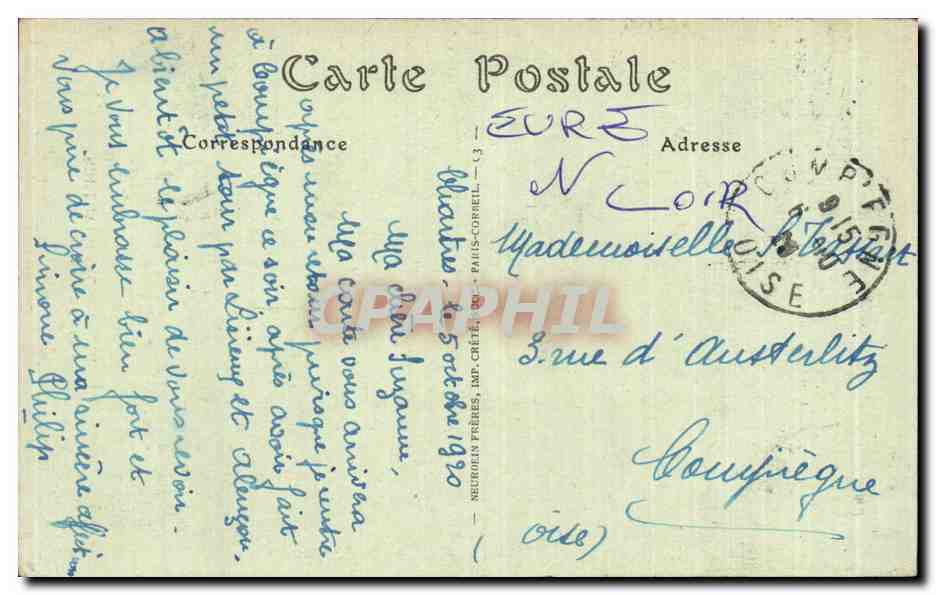 Carte Postale
Correspondance
Adresse
EURE
N LOIR
Chartres, le 5 octobre 1920
Ma chère Suzanne,
Ma carte vous arrivera
après mon retour puisque je rentre
à Compiègne ce soir après avoir fait
un petit tour par Lisieux et Alençon.
à bientôt le plaisir de vous revoir.
Je vous embrasse bien fort et
vous prie de croire à ma sincère affection
Simone Philip
Mademoiselle S.
3. rue d'Austerlitz
Compiègne
(Oise)
COMPIEGNE
OISE
NEURDEIN FRÈRES, IMP. CRÉTÉ, PARIS-CORBEIL.
CPAPHIL